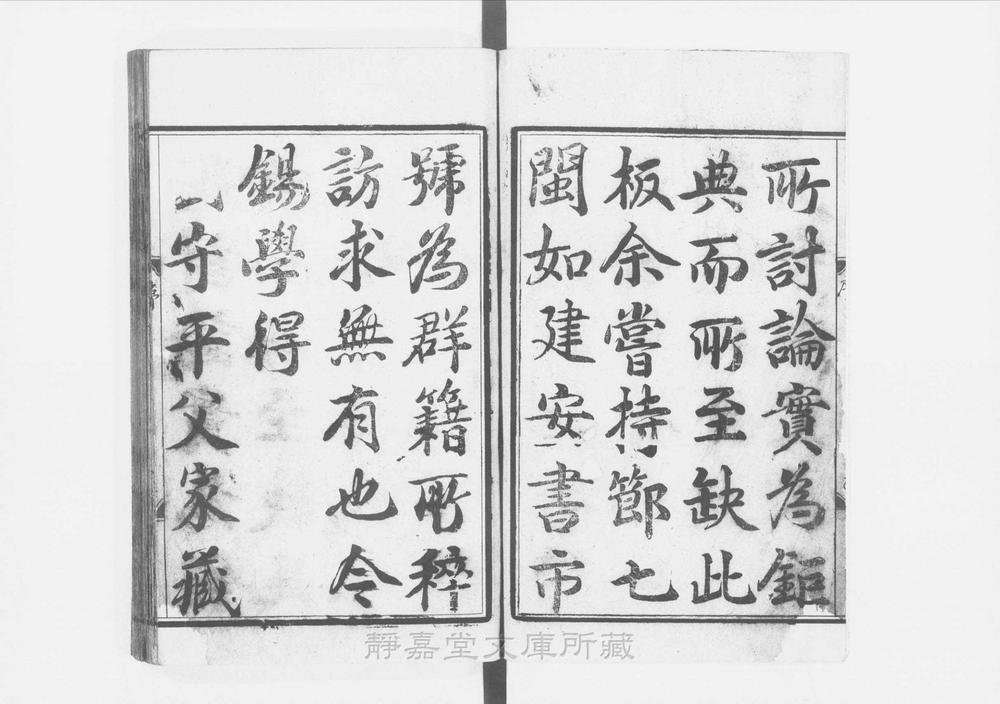 所討論實為鉅
典而所至缺此
板余嘗持節七
閩如建安書市
號為群籍所稡
訪求無有也今
錫學得
守平父家藏
序
靜嘉堂文庫所藏